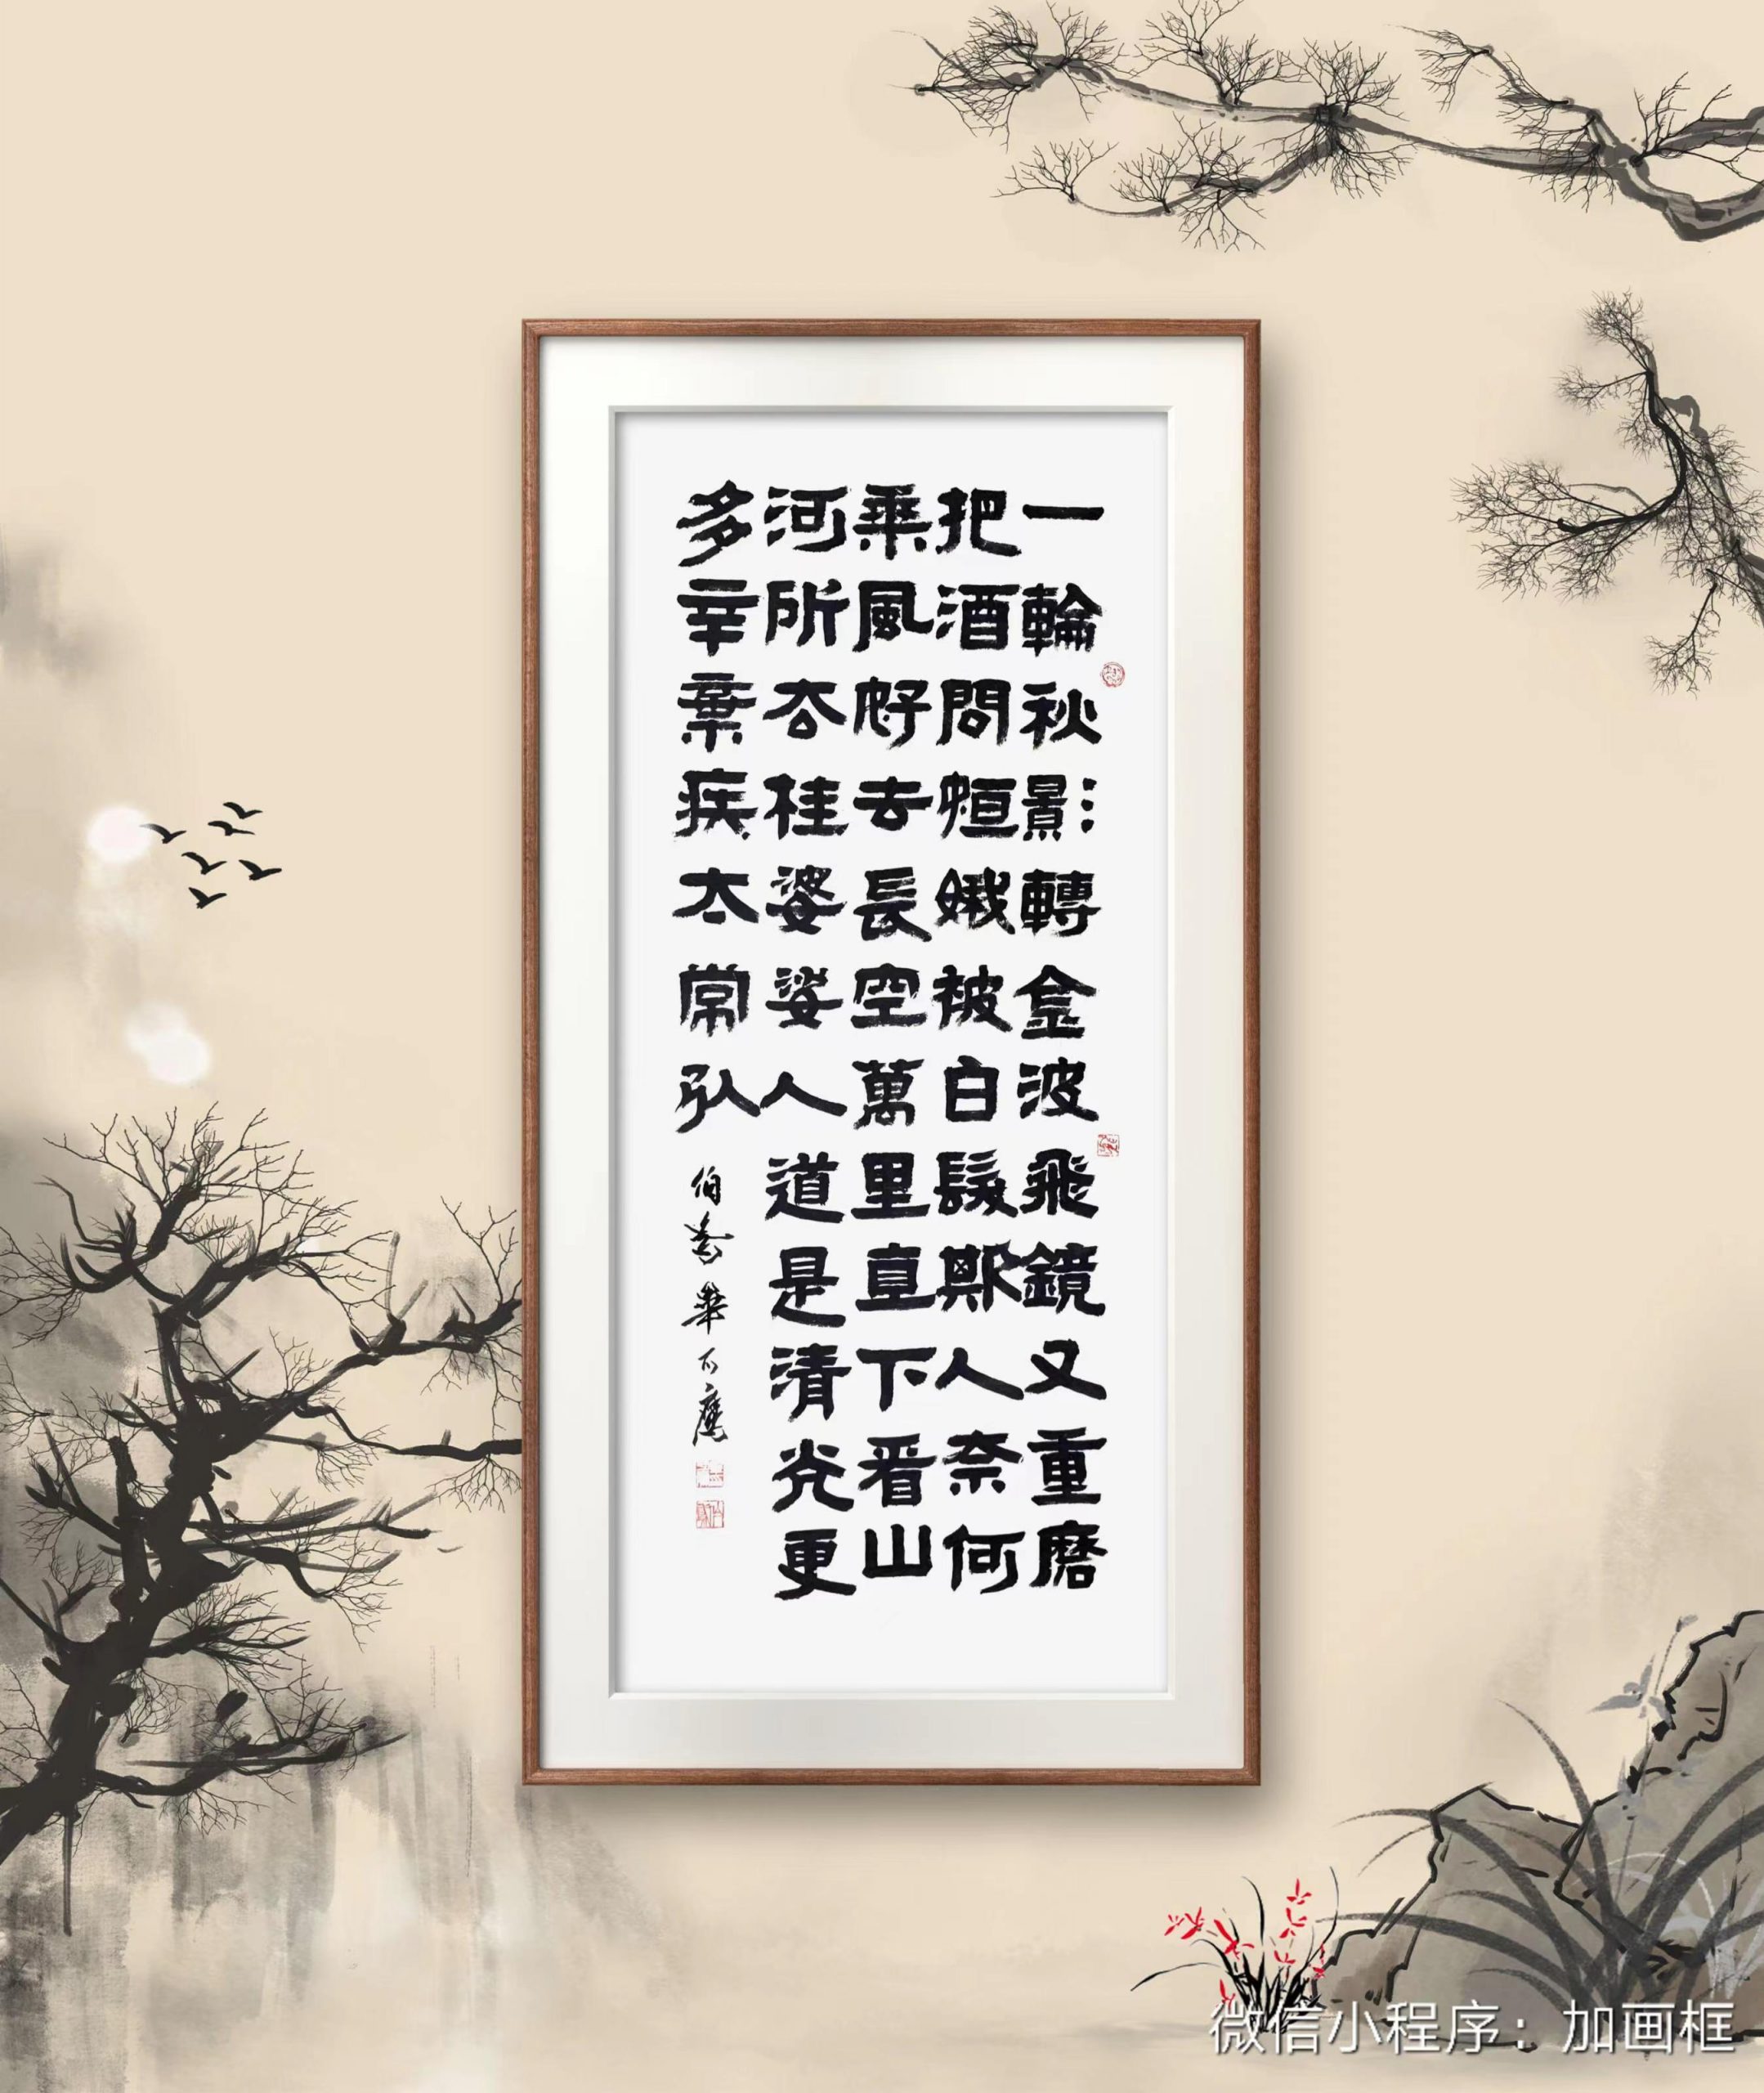 一輪秋影轉金波飛鏡又重磨
把酒問姮娥被白髮欺人奈何
乘風好去長空萬里直下看山
河斫去桂婆娑人道是清光更
多辛棄疾太常引
伯
微信小程序：加画框